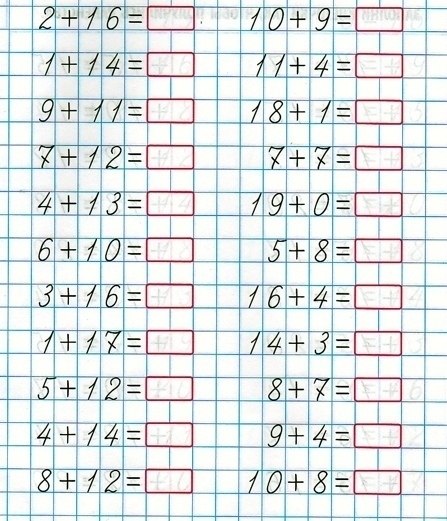 2+16= 10+9=
1+14= 11+4=
9+11= 18+1=
7+12= 7+7=
4+13= 19+0=
6+10= 5+8=
3+16= 16+4=
1+17= 14+3=
5+12= 8+7=
4+14= 9+4=
8+12= 10+8=